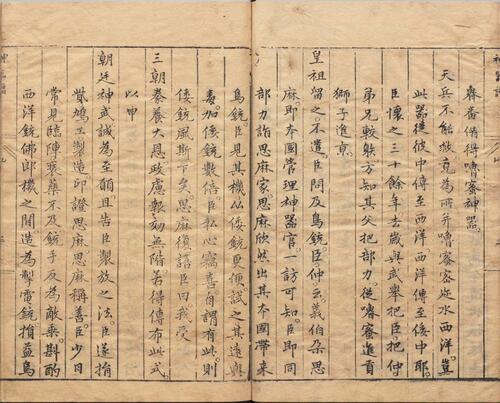 番備得嚕蜜神器。
天兵不能敵竟為所并嚕蜜密邇水西洋。豈
此器從彼中傳至西洋西洋傳至倭中耶。
臣懷之三十餘年去歲與武舉把臣把仲
弟兄較射方知其父把部力。從嚕蜜進貢
獅子進京。
皇祖留之。不遣。臣問及鳥銃。臣仲云義伯朶思
麻。即本國管理神器官。一訪可知。臣即同
部力詣思麻家思麻欣然出其本國帶來
鳥銃臣見其機似倭銃更便試之其遠與
毒。加倭銃數倍臣私心竊喜自謂有此。則
倭銃風斯下矣思麻復語臣曰我受
三朝豢養大恩致慮報効無階第得傳布此式。
以申
朝廷神武誠為至願且告臣製放之法。臣遂捐
貲鳩工製造。印證思麻稱善。臣少日
常見臨陣裝藥不及銃手反為敵乘。斟酌
西洋銃佛郎機之間造為掣電銃損益鳥